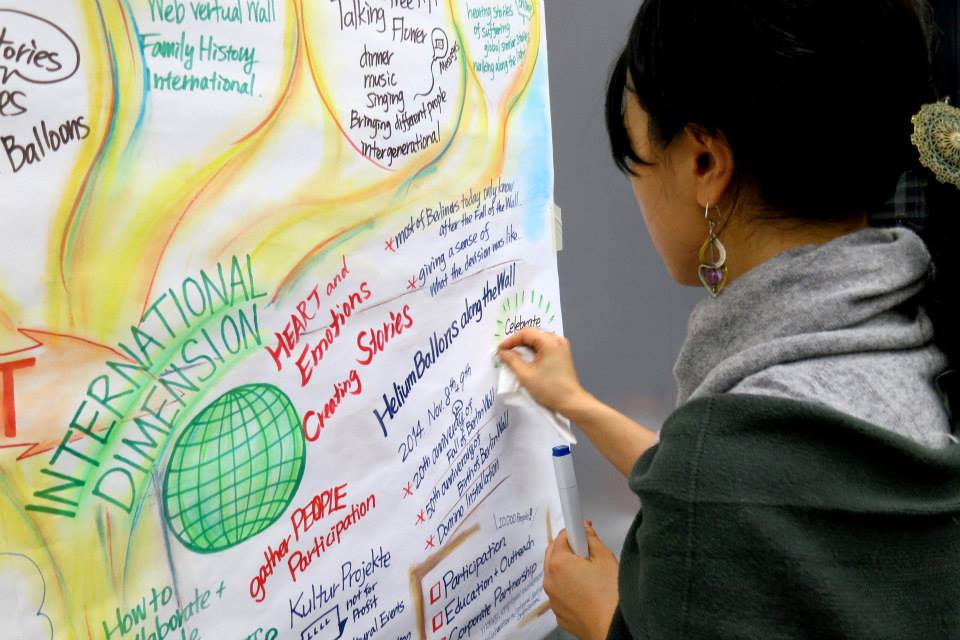 tories
es
Balloons
Web Vertual Wall
Family History
International.
Talking
Flower
dinner
music
singing
Bringing different people
intergenerational
Message
hearing stories
of suffering
global similar stories
walking along the
* most of Berliners today only know
after the Fall of the Wall
* giving a sense of
what the devision was like...
INTERNATIONAL
DIMENSION
HEART and
Emotions
Creating Stories
Helium Ballons along the Wall
Celebrate
2014. Nov. 8th, 9th
* 20th anniversary of
Fall of Berlin Wall
* 50th anniversary of
Birth of Berlin Wall
* Domino Installation
T
gather PEOPLE
Participation
Kultur Projekte
not for
Profit
ural Events
10,000 People!
Participation
Education + Outreach
Corporate Partnership
How to
llaborate +